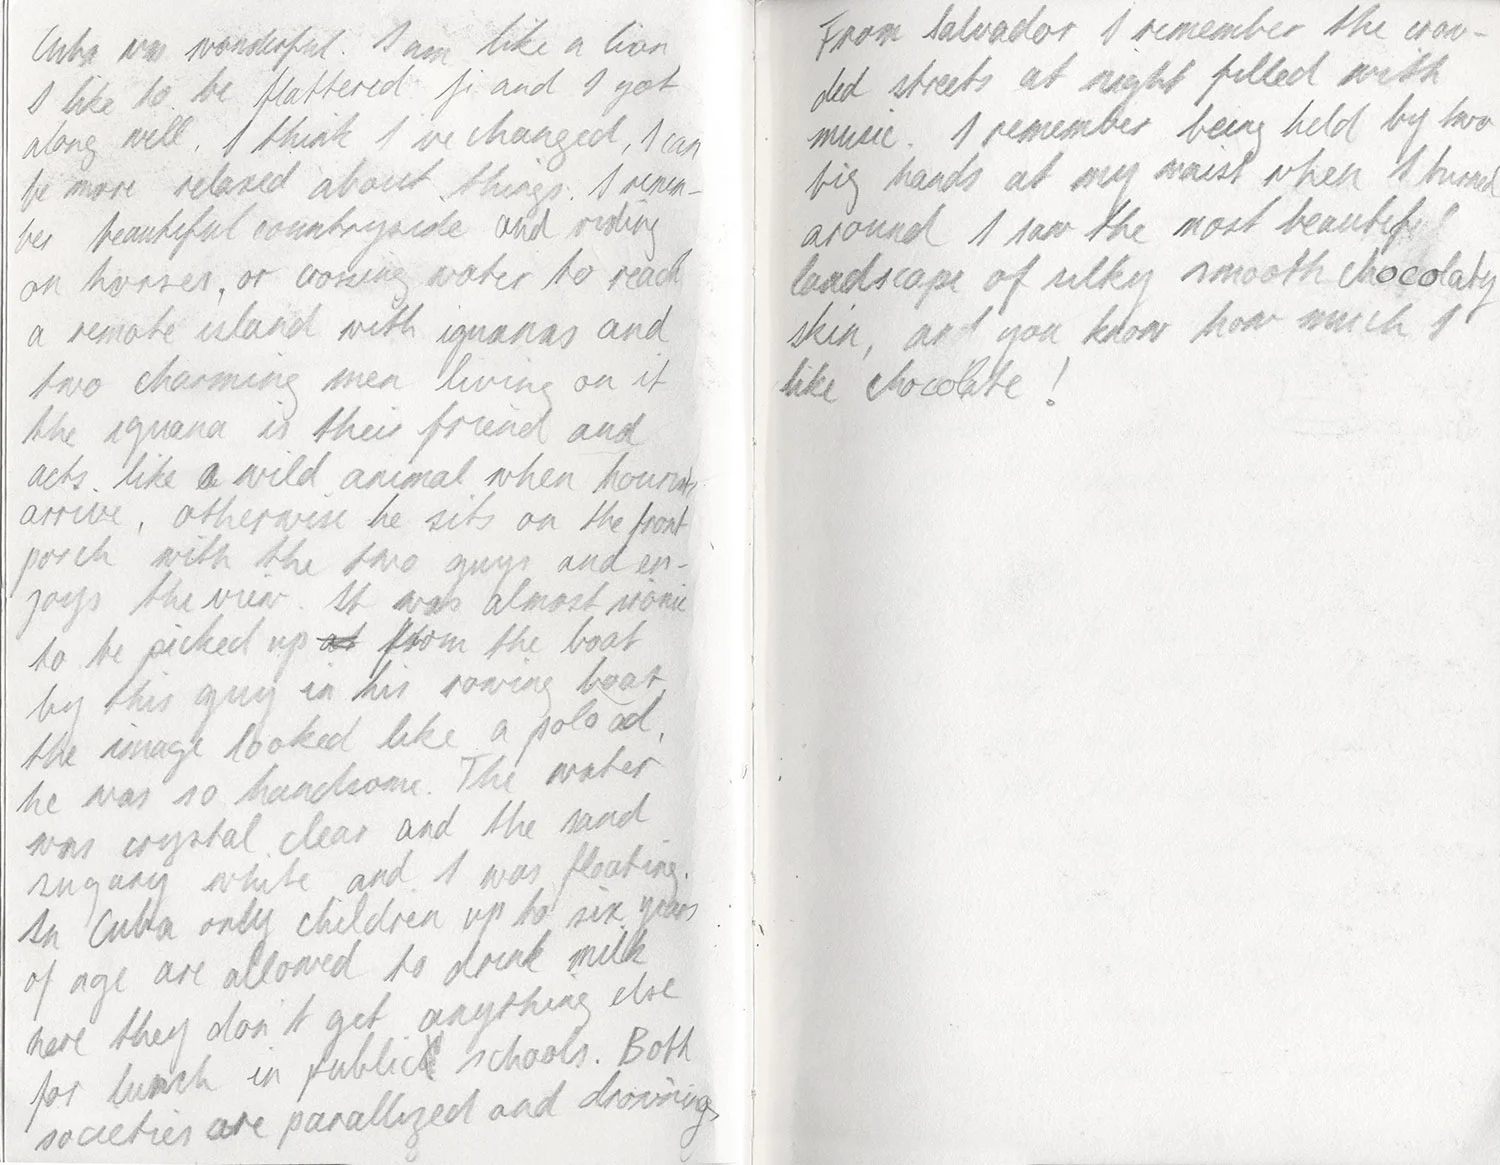 Cuba was wonderful. I am like a lion
I like to be flattered Ji and I got
along well. I think I've changed, I can
be more relaxed about things. I remem-
ber beautiful countryside and riding
on horses, or crossing water to reach
a remote island with iguanas and
two charming men living on it
the iguana is their friend and
acts like a wild animal when tourists
arrive, otherwise he sits on the front
porch with the two guys and en-
joys the view. It was almost ironic
to be picked up from the boat
by this guy in his rowing boat,
the image looked like a polo ad,
he was so handsome. The water
was crystal clear and the sand
sugary white and I was floating.
In Cuba only children up to six years
of age are allowed to drink milk
here they don't get anything else
for lunch in public schools. Both
societies are parallized and drowning
From Salvador I remember the crow-
ded streets at night filled with
music. I remember being held by two
big hands at my waist when I turned
around I saw the most beautiful
landscape of silky smooth chocolaty
skin, and you know how much I
like chocolate!